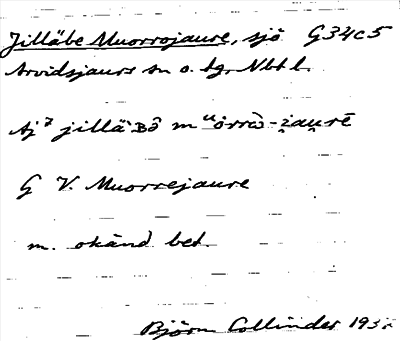 Jilläbe Muorrojaure, sjö G34c5
Arvidsjaurs sn o. tg. Nbtl.
Aj⁷ jilläʙŏ mᵘörrò-i̯au̯rē
G V. Muorrejaure
m. okänd bet.
Björn Collinder